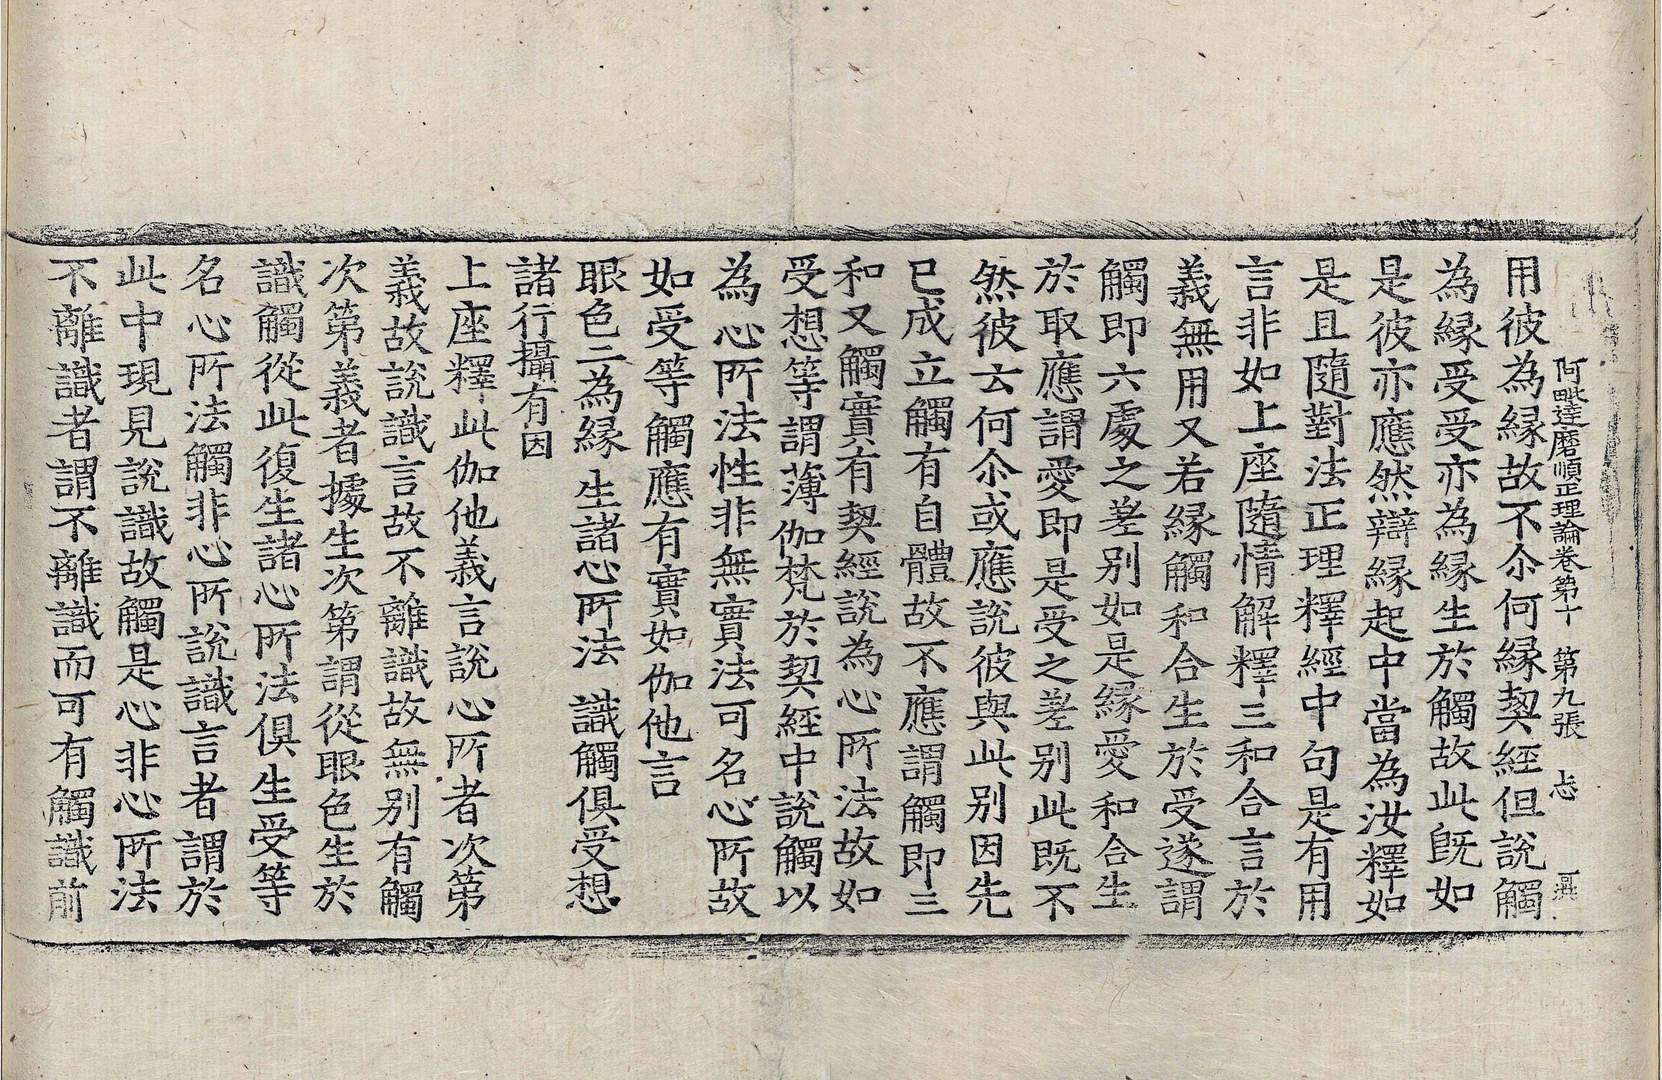 阿毗達磨順正理論卷第十 第九張 忐
用彼為縁故不尒何縁契經但說觸
為縁受受亦為縁生於觸故此旣如
是彼亦應然辯縁起中當為汝釋如
是且隨對法正理釋經中句是有用
言非如上座隨情解釋三和合言於
義無用又若縁觸和合生於受遂謂
觸即六處之差别如是縁愛和合生
於取應謂愛即是受之差别此旣不
然彼云何尒或應說彼與此别因先
已成立觸有自體故不應謂觸即三
和又觸實有契經說為心所法故如
受想等謂薄伽梵於契經中說觸以
為心所法性非無實法可名心所故
如受等觸應有實如伽他言
眼色二為縁 生諸心所法 識觸俱受想
諸行攝有因
上座釋此伽他義言說心所者次第
義故說識言故不離識故無别有觸
次第義者據生次第謂從眼色生於
識觸從此復生諸心所法俱生受等
名心所法觸非心所說識言者謂於
此中現見說識故觸是心非心所法
不離識者謂不離識而可有觸識前